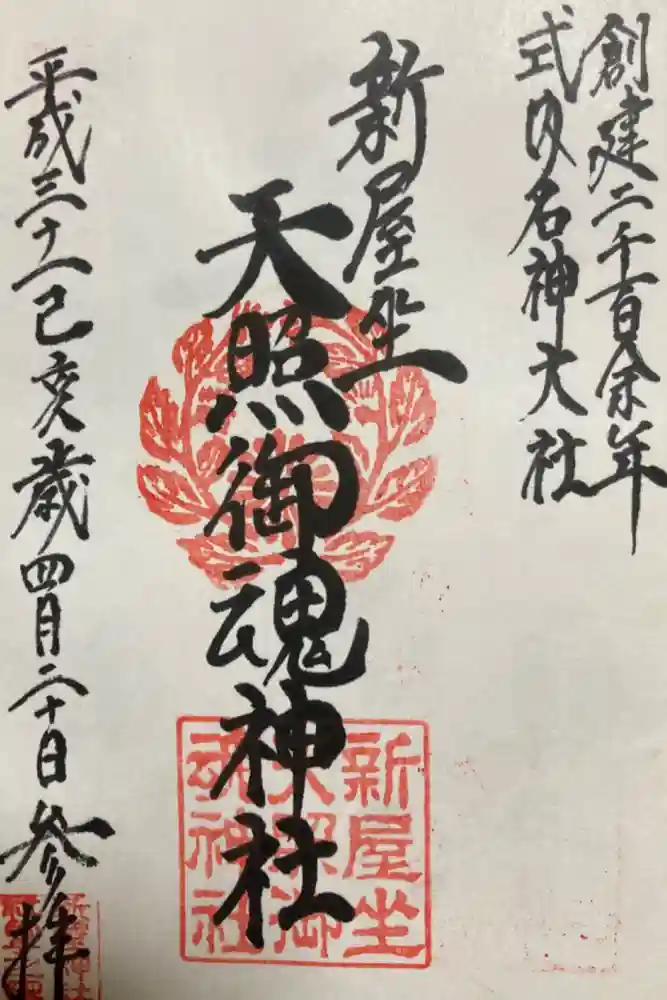 創建二千百余年
式内名神大社
新屋坐
天照御魂神社
新屋坐
天照御
魂神社
平成三十一己亥歳四月二十日参拝